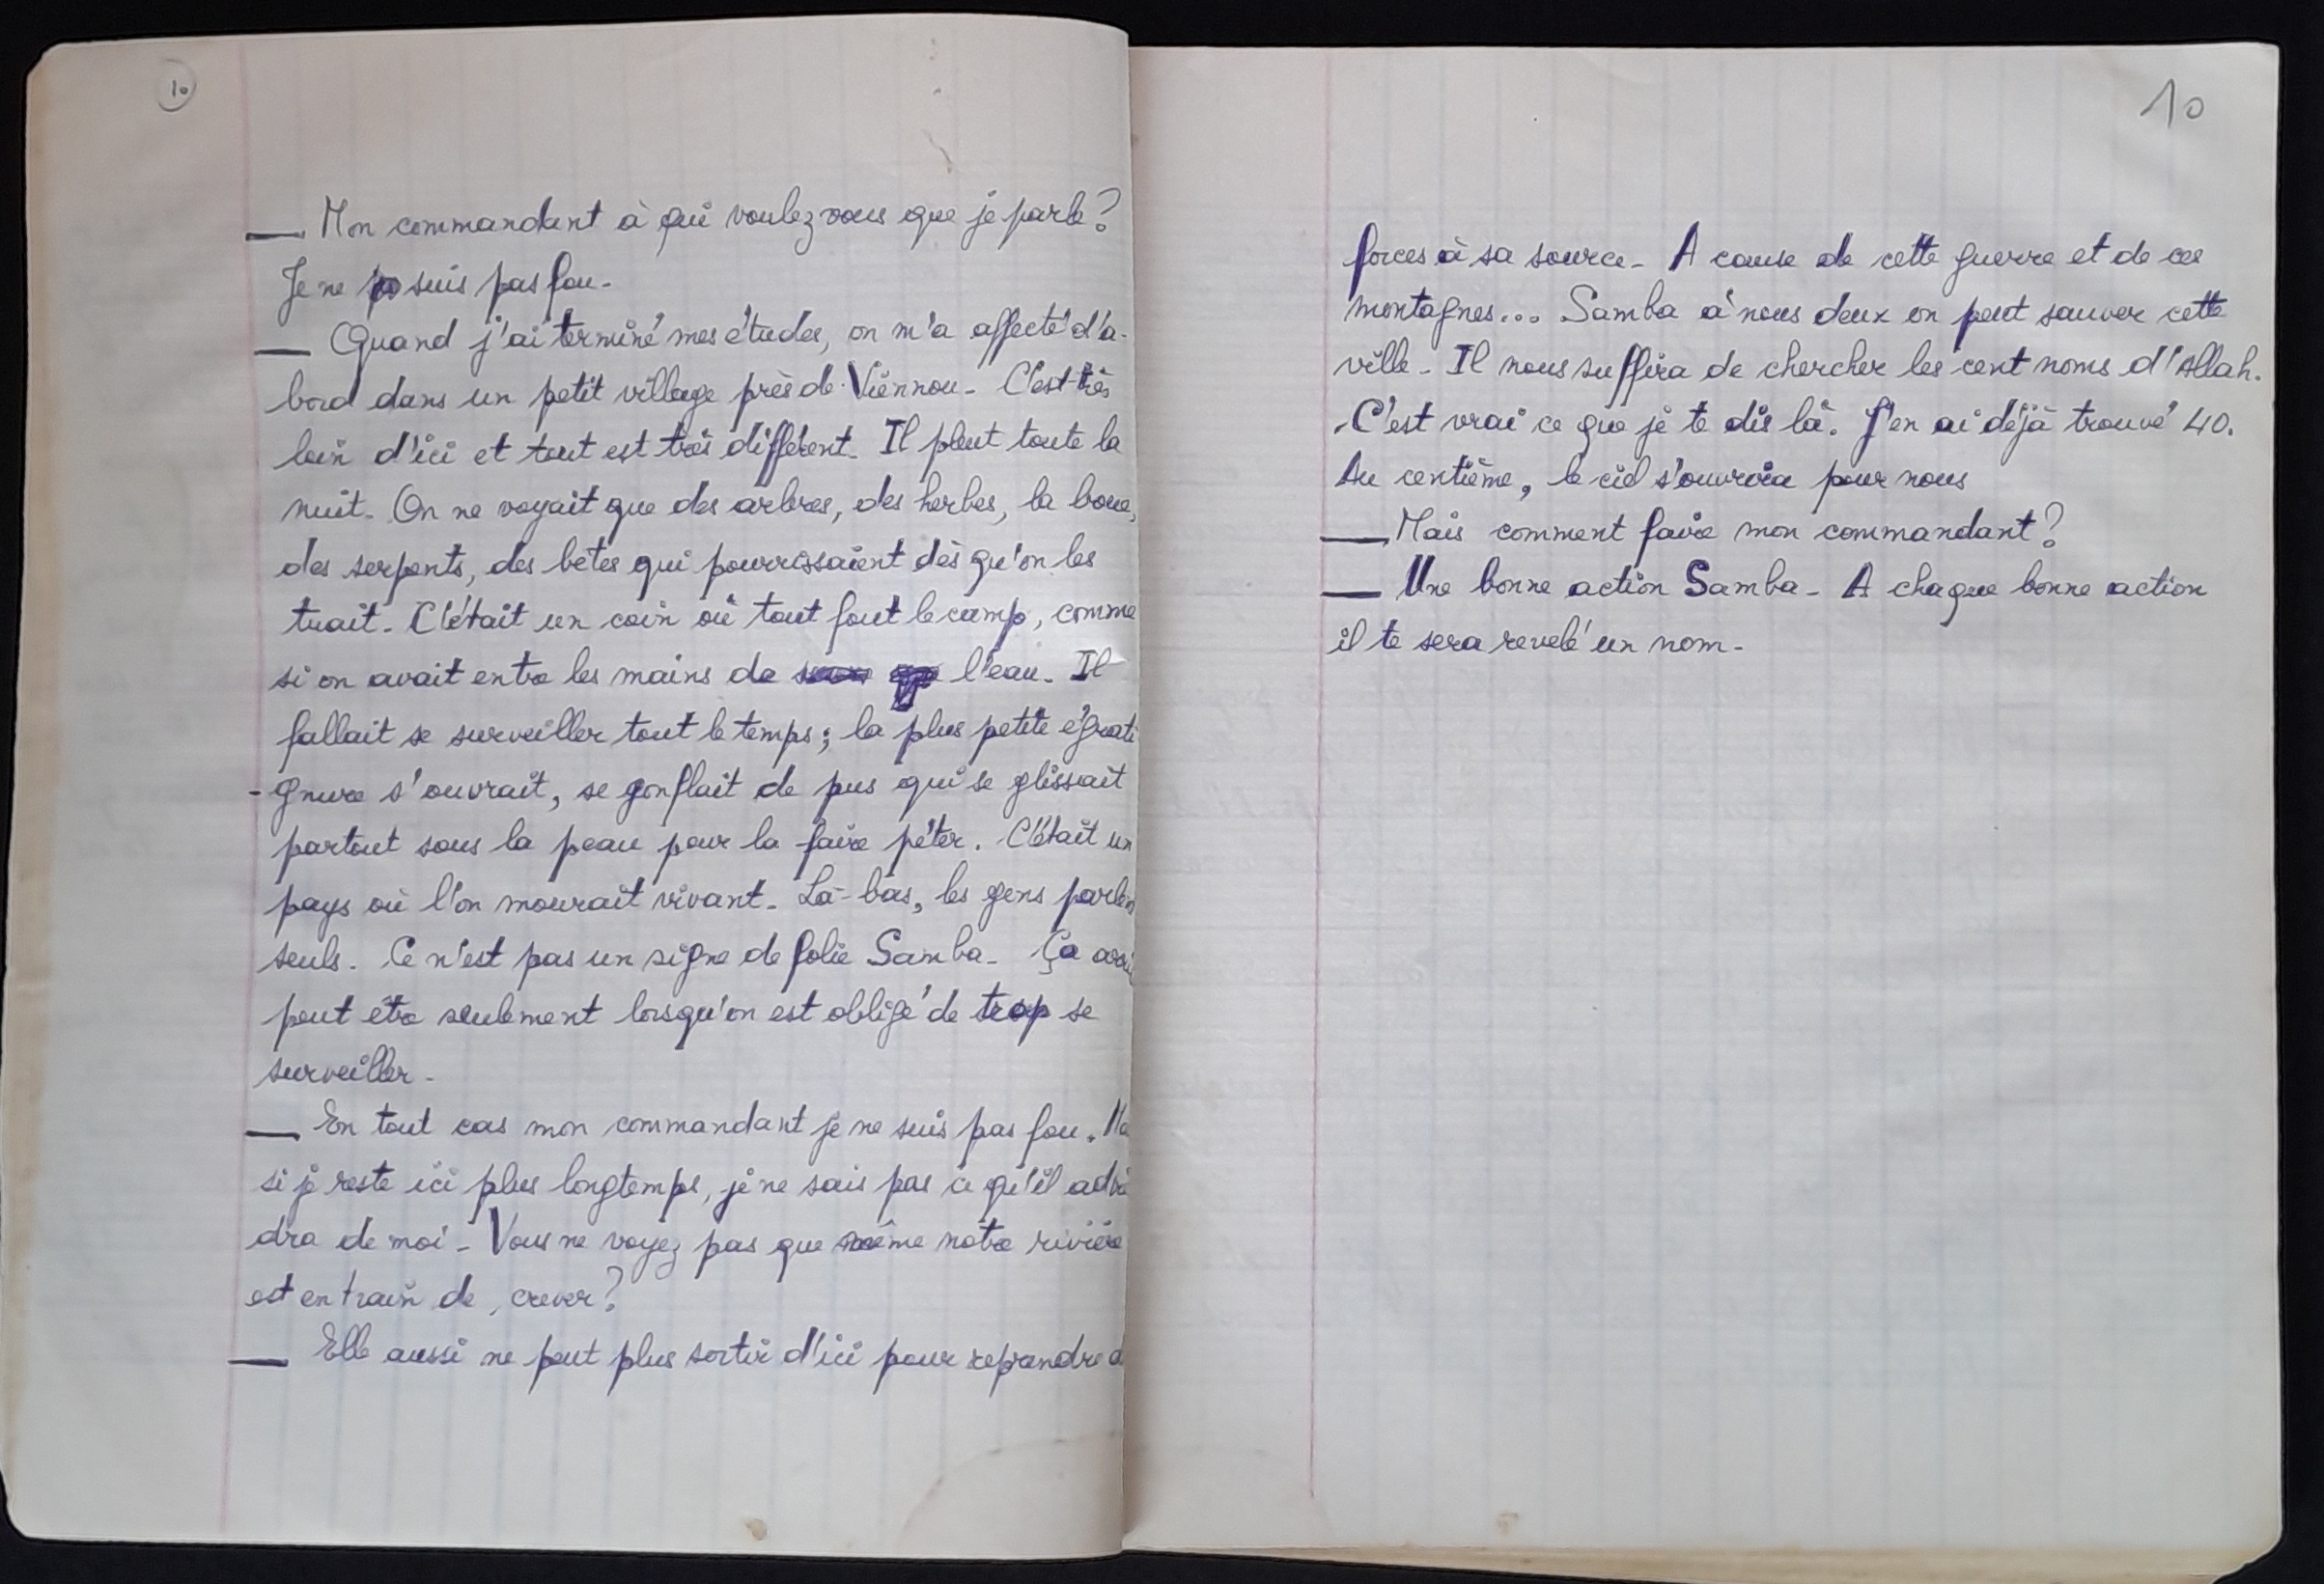 10
— Mon commandant à qui voulez vous que je parle?
Je ne suis pas fou.
— Quand j'ai terminé mes études, on m'a affecté d'a-
bord dans un petit village près de Viennou. C'est très
loin d'ici et tout est très différent. Il pleut toute la
nuit. On ne voyait que des arbres, des herbes, la boue,
des serpents, des bêtes qui pourrissaient dès qu'on les
tuait. C'était un coin où tout fout le camp, comme
si on avait entre les mains de l'eau. Il
fallait se surveiller tout le temps; la plus petite égrati
-gnure s'ouvrait, se gonflait de pus qui se glissait
partout sous la peau pour la faire péter. C'était un
pays où l'on mourait vivant. Là-bas, les gens
seuls. Ce n'est pas un signe de folie Samba. Ça
peut être seulement lorsqu'on est obligé de trop se
surveiller.
— En tout cas mon commandant je ne suis pas fou.
si je reste ici plus longtemps, je ne sais pas ce qu'il
dra de moi. Vous ne voyez pas que même notre rivière
est en train de, crever?
— Elle aussi ne peut plus sortir d'ici pour reprendre
10
forces à sa source. A cause de cette guerre et de ces
montagnes... Samba à nous deux on peut sauver cette
ville. Il nous suffira de chercher les cent noms d'Allah.
C'est vrai ce que je te dis là. J'en ai déjà trouvé 40.
Au centième, le ciel s'ouvrira pour nous
— Mais comment faire mon commandant?
— Une bonne action Samba. A chaque bonne action
il te sera revelé un nom.